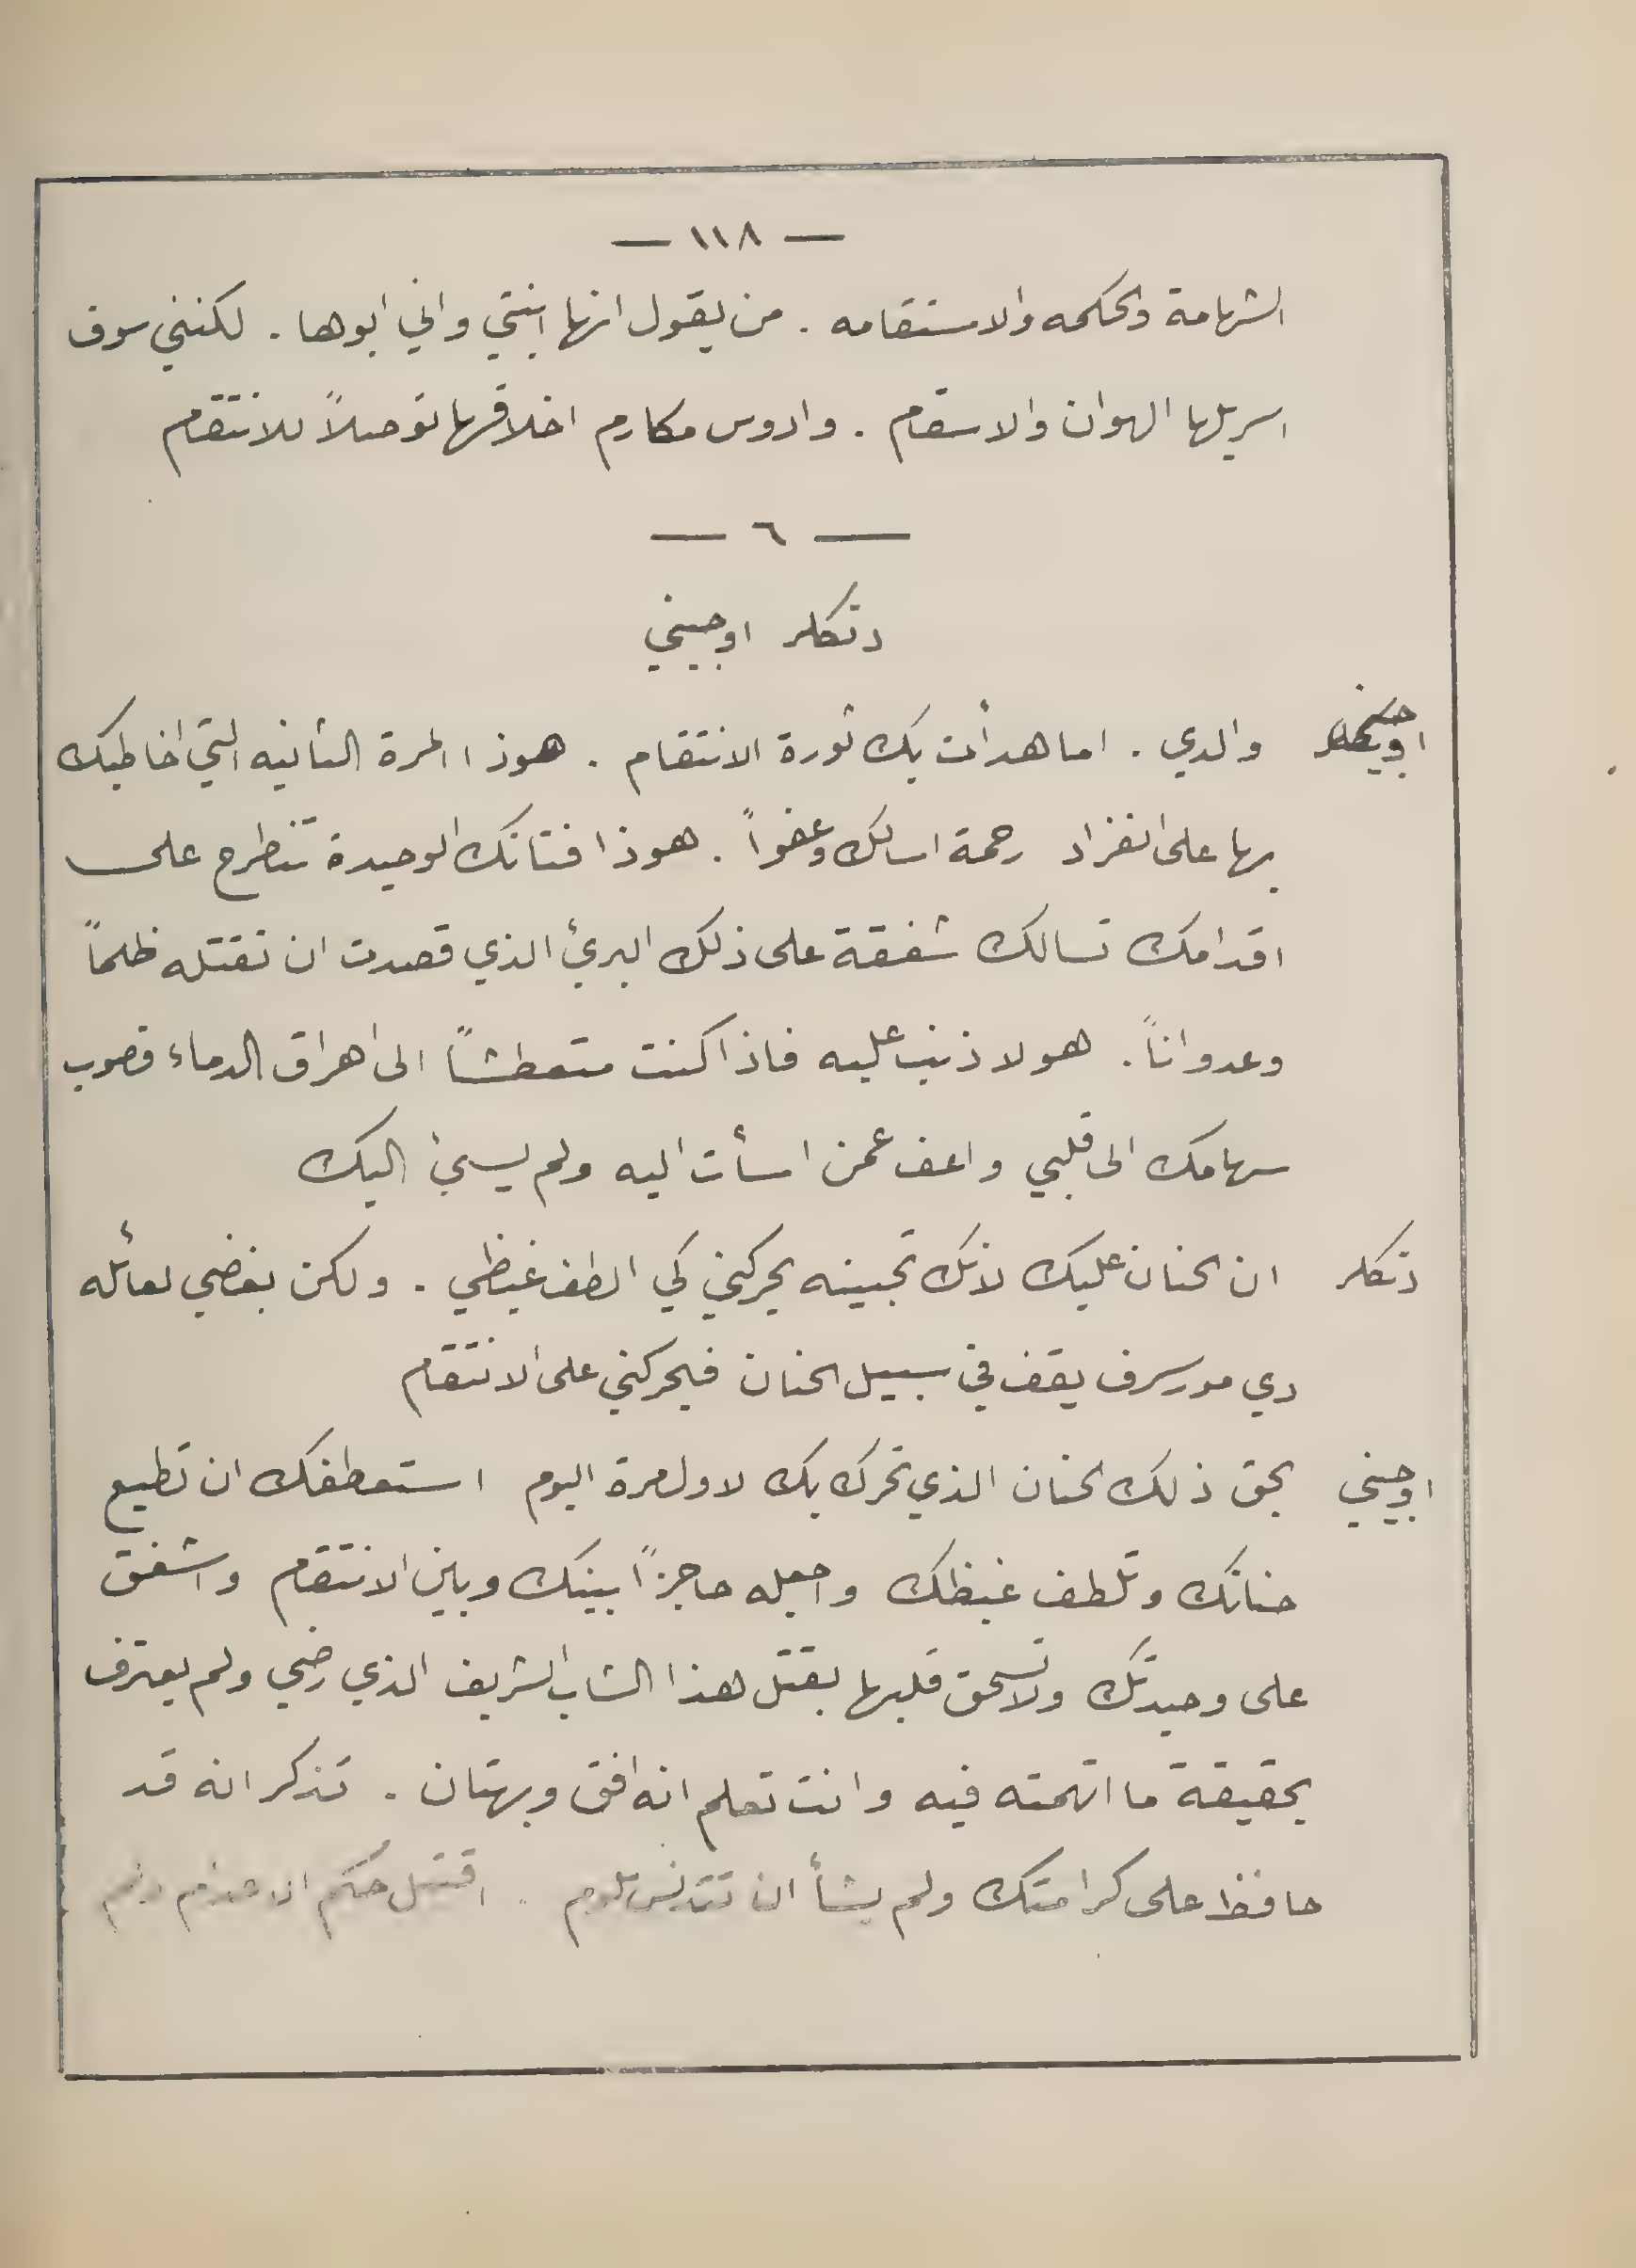 — ١١٨ —
الشهامة والحكمه والاستقامه . من يقول انها ابنتي واني ابوها . لكنني سوف
اسربلها الهوان والاسقام . وادوس مكارم اخلاقها توصلاً للانتقام
— ٦ —
دنكلر اوجيني
اوجيني والدي . اما هدأت بك ثورة الانتقام . هوذا المرة الثانيه التي اخاطبك
بها على انفراد رحمة اسالك وعفواً . هوذا فتاتك الوحيدة تنطرح على
اقدامك تسالك شفقة على ذلك البرئ الذي قصدت ان تقتله ظلماً
وعدواناً . هو لا ذنب عليه فاذا كنت متعطشاً الى اهراق الدماء فصوب
سهامك الى قلبي واعف عمن اسأت اليه ولم يسئ اليك
دنكلر ان الحنان عليك لانك تحبينه يحركني كي الطف غيظي . ولكن بغضي لعائله
دي مورسرف يقف في سبيل الحنان فيحركني على الانتقام
اوجيني بحق ذلك الحنان الذي تحرك بك لاول مرة اليوم استعطفك ان تطيع
حنانك وتلطف غيظك واجعله حاجزاً بينك وبين الانتقام واشفق
على وحيدتك ولا تسحق قلبها بقتل هذا الشاب الشريف الذي رضي ولم يعترف
بحقيقة ما اتهمته فيه وانت تعلم انه افق وبهتان . تذكر انه قد
حافظ على كرامتك ولم يشأ ان تتدنس . اقتبل حكم الاعدام ولم